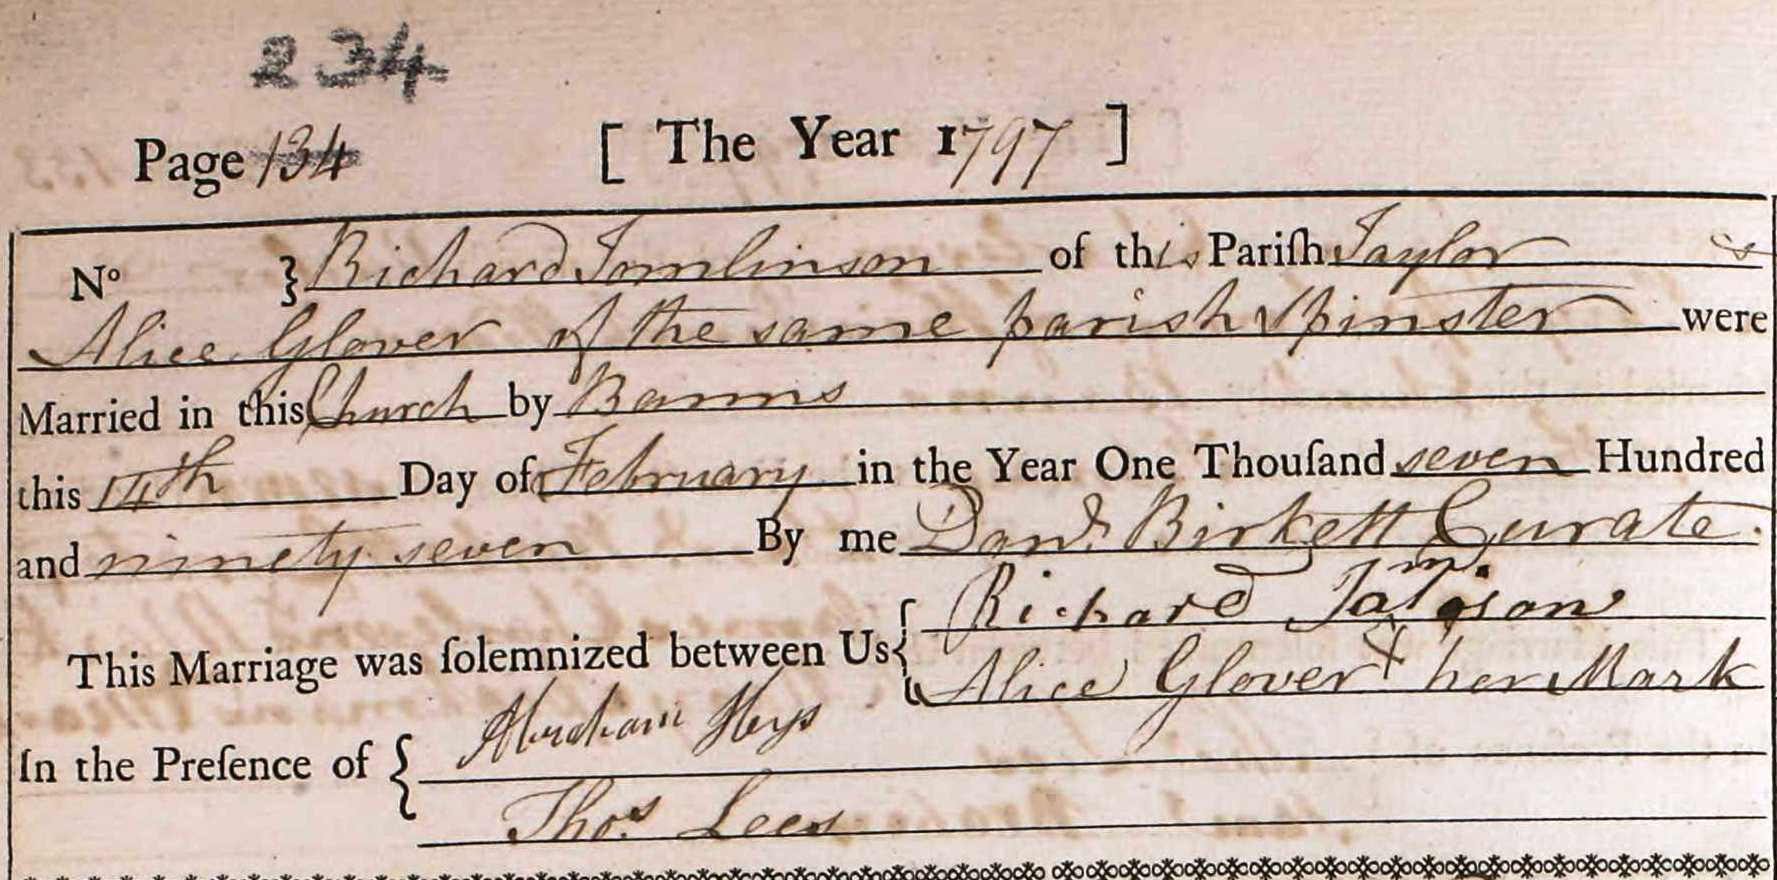 234
Page 134 [ The Year 1797 ]
No } Richard Tomlinson of this Pariſh Taylor &
Alice Glover of the same parish Spinster were
Married in this Church by Banns
this 14th Day of February in the Year One Thouſand seven Hundred
and ninety seven By me Danl. Birkett Curate.
This Marriage was ſolemnized between Us { Richard
Alice Glover X her Mark
In the Preſence of { Abraham Heys
Thos. Lees